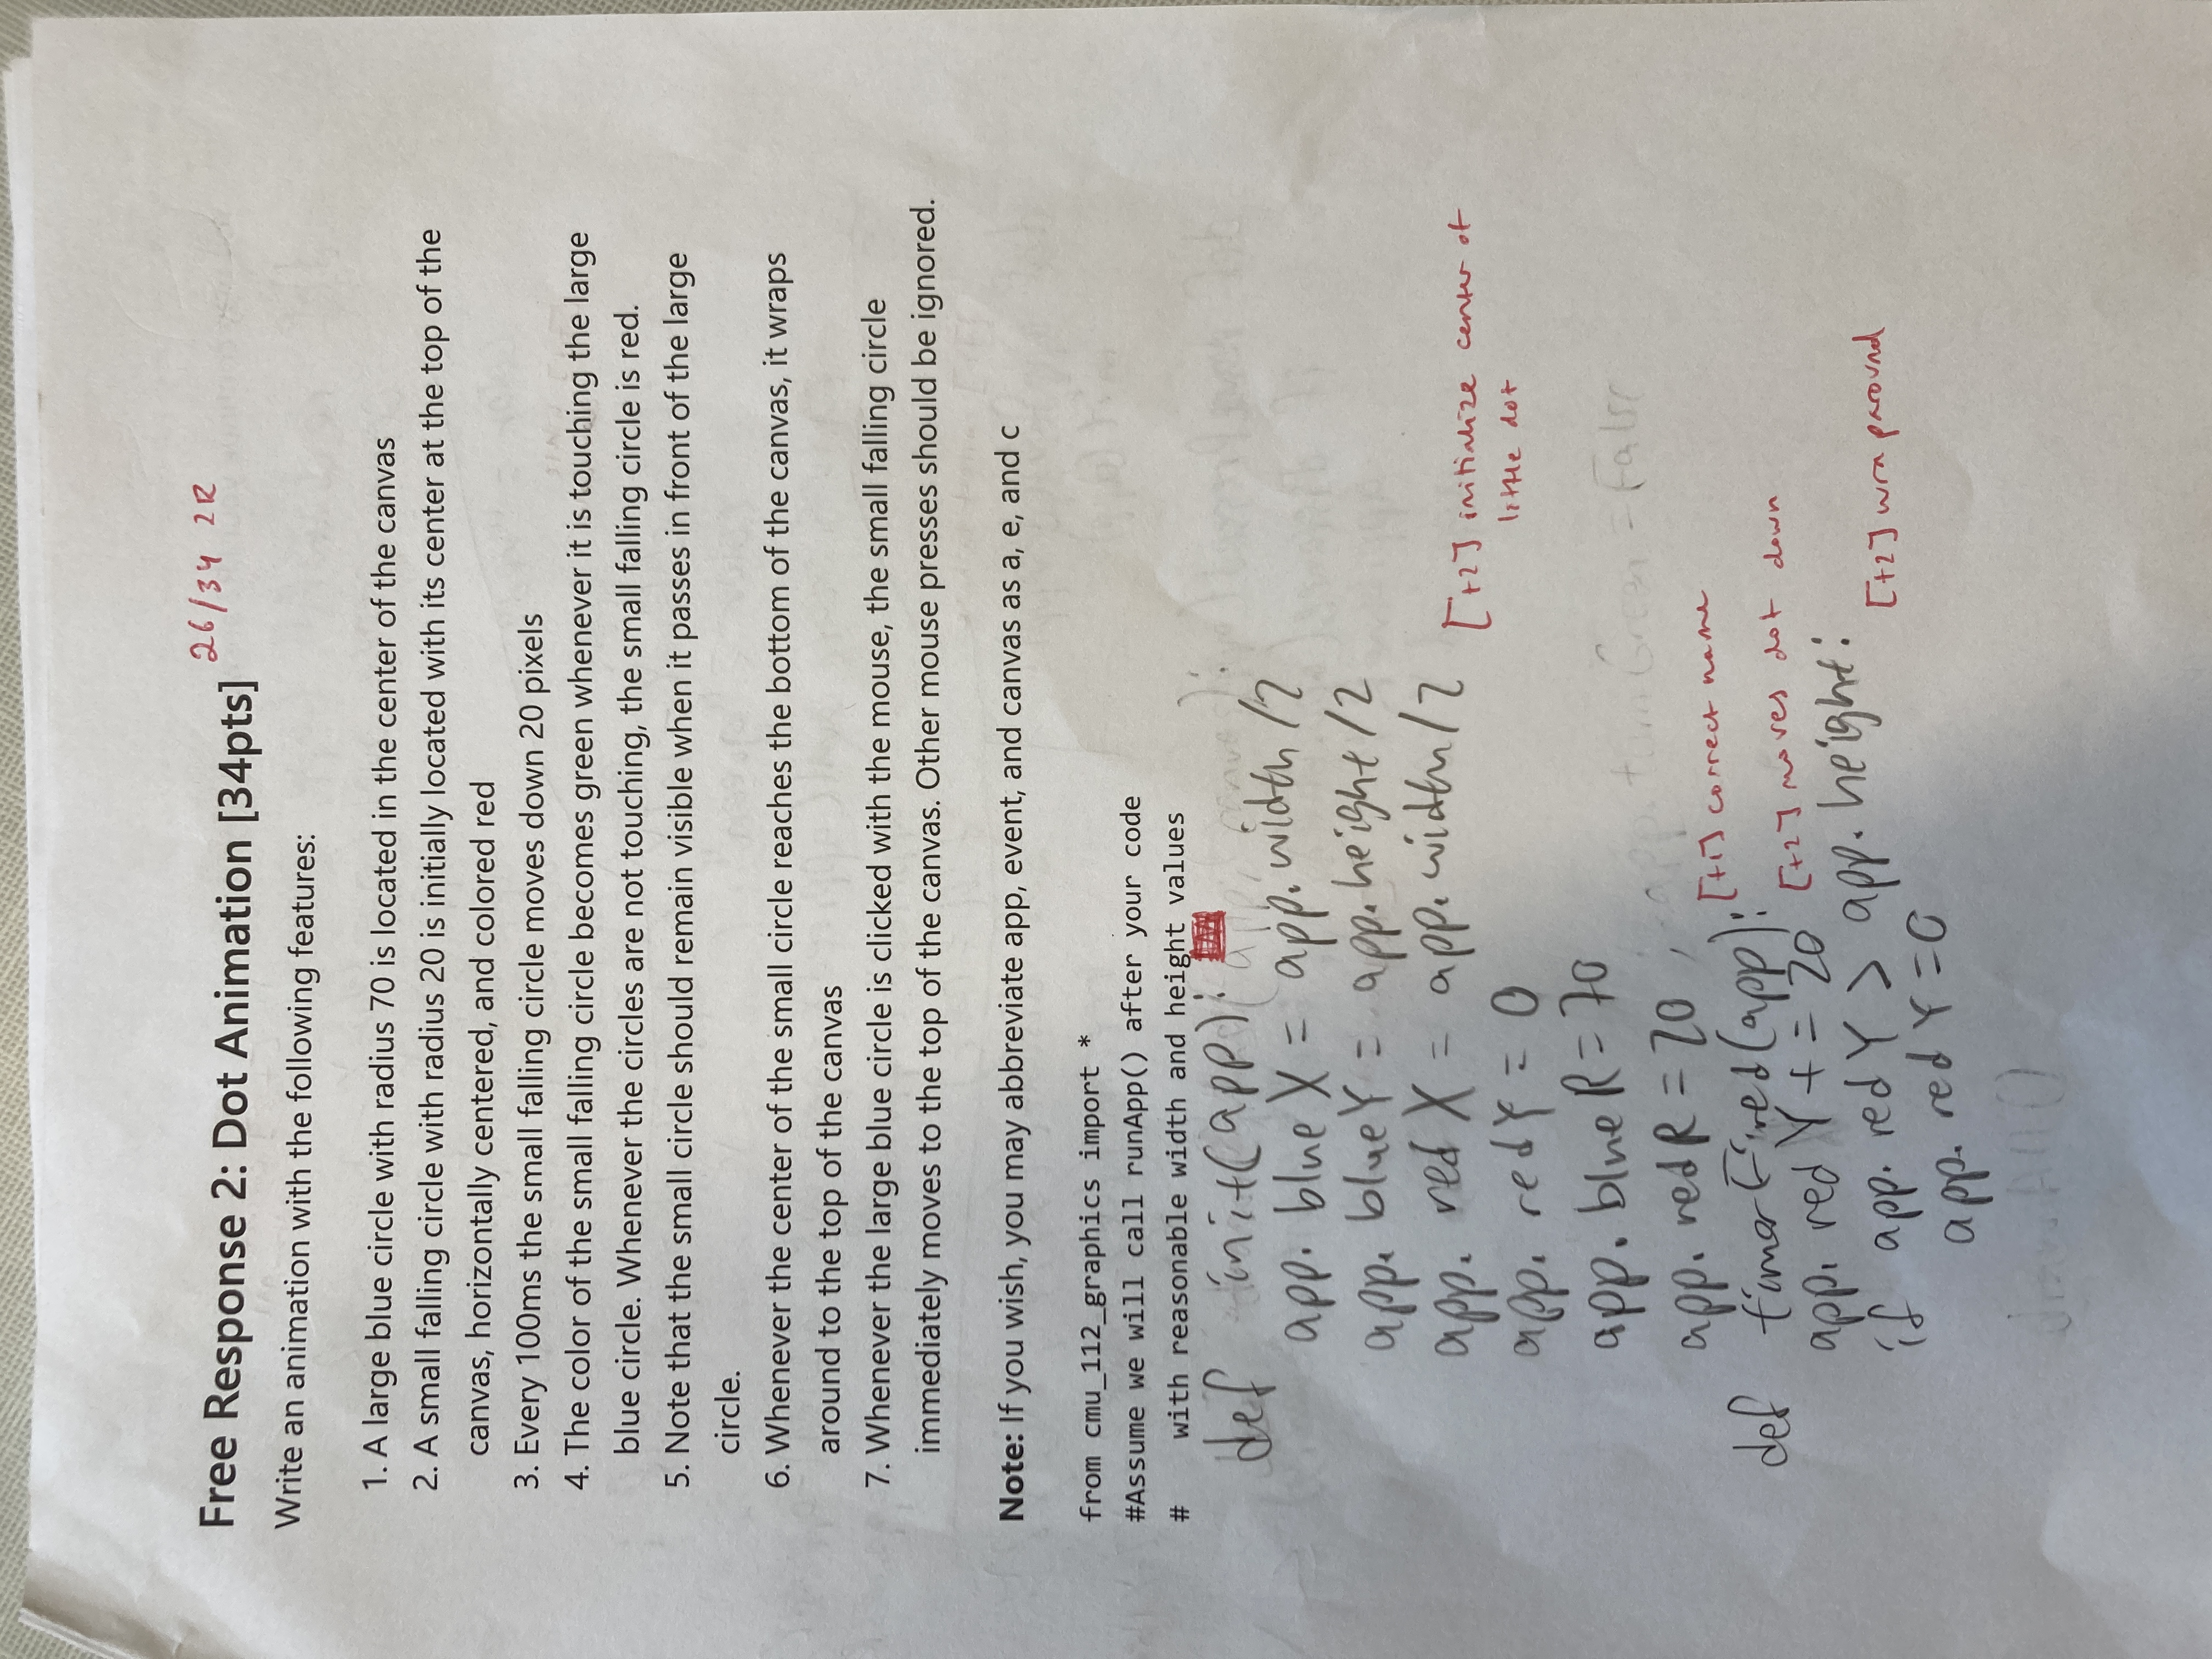 Free Response 2: Dot Animation [34pts] 26/34 2R
Write an animation with the following features:
1. A large blue circle with radius 70 is located in the center of the canvas
2. A small falling circle with radius 20 is initially located with its center at the top of the
canvas, horizontally centered, and colored red
3. Every 100ms the small falling circle moves down 20 pixels
4. The color of the small falling circle becomes green whenever it is touching the large
blue circle. Whenever the circles are not touching, the small falling circle is red.
5. Note that the small circle should remain visible when it passes in front of the large
circle.
6. Whenever the center of the small circle reaches the bottom of the canvas, it wraps
around to the top of the canvas
7. Whenever the large blue circle is clicked with the mouse, the small falling circle
immediately moves to the top of the canvas. Other mouse presses should be ignored.
Note: If you wish, you may abbreviate app, event, and canvas as a, e, and c
from cmu_112_graphics import *
#Assume we will call runApp() after your code
#    with reasonable width and height values
def init(app):
app.blueX = app.width/2
app.blueY = app.height/2
app.redX = app.width/2
[+2] initialize center of
little dot
app.redY = 0
app.blueR = 70
app.turnGreen = False
app.redR = 20
def timerFired(app): [+1] correct name
app.redY += 20 [+2] moves dot down
if app.redY > app.height:
[+2] wraparound
app.redY = 0